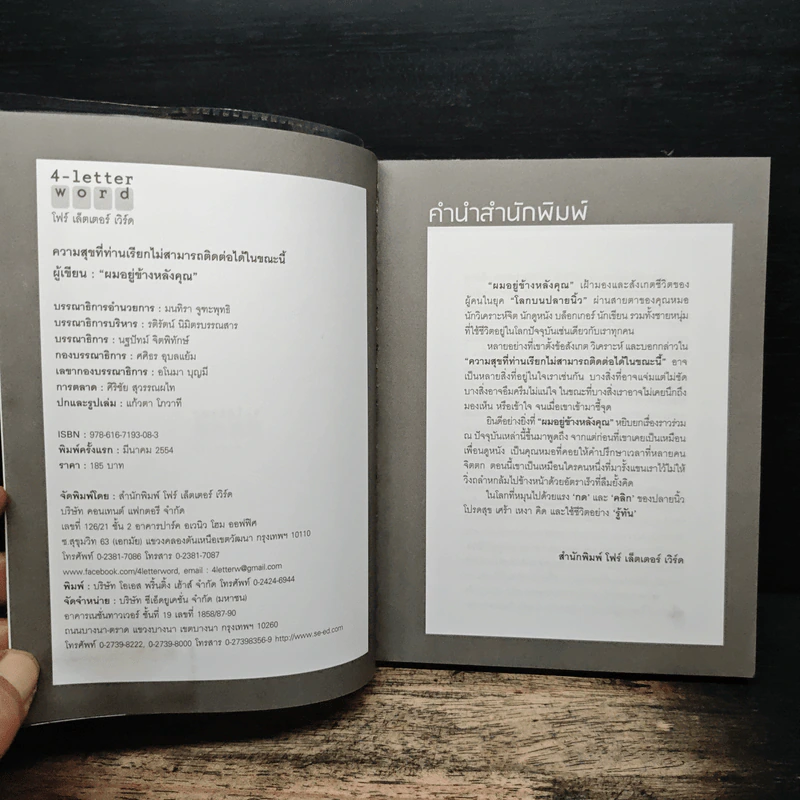 4-letter
word
โฟร์ เล็ตเตอร์ เวิร์ด
ความสุขที่ท่านเรียกไม่สามารถติดต่อได้ในขณะนี้
ผู้เขียน : "ผมอยู่ข้างหลังคุณ"
บรรณาธิการอำนวยการ : มนทิรา จูฑะพุทธิ
บรรณาธิการบริหาร : รติรัตน์ นิมิตรบรรณสาร
บรรณาธิการ : นฐปัทม์ จิตพิทักษ์
กองบรรณาธิการ : ศศิธร อุบลแย้ม
เลขากองบรรณาธิการ : อโนมา บุญมี
การตลาด : ศิริชัย สุวรรณผไท
ปกและรูปเล่ม : แก้วตา โภวาที
ISBN : 978-616-7193-08-3
พิมพ์ครั้งแรก : มีนาคม 2554
ราคา : 185 บาท
จัดพิมพ์โดย : สำนักพิมพ์ โฟร์ เล็ตเตอร์ เวิร์ด
บริษัท คอนเทนต์ แฟกตอรี่ จำกัด
เลขที่ 126/21 ชั้น 2 อาคารปาร์ค อเวนิว โฮม ออฟฟิศ
ซ.สุขุมวิท 63 (เอกมัย) แขวงคลองตันเหนือเขตวัฒนา กรุงเทพฯ 10110
โทรศัพท์ 0-2381-7086 โทรสาร 0-2381-7087
www.facebook.com/4letterword, email : 4letterw@gmail.com
พิมพ์ : บริษัท โอเอส พริ้นติ้ง เฮ้าส์ จำกัด โทรศัพท์ 0-2424-6944
จัดจำหน่าย : บริษัท ซีเอ็ดยูเคชั่น จำกัด (มหาชน)
อาคารเนชั่นทาวเวอร์ ชั้นที่ 19 เลขที่ 1858/87-90
ถนนบางนา-ตราด แขวงบางนา เขตบางนา กรุงเทพฯ 10260
โทรศัพท์ 0-2739-8222, 0-2739-8000 โทรสาร 0-27398356-9 http://www.se-ed.com
คำนำสำนักพิมพ์
"ผมอยู่ข้างหลังคุณ" เฝ้ามองและสังเกตชีวิตของ
ผู้คนในยุค "โลกบนปลายนิ้ว" ผ่านสายตาของคุณหมอ
นักวิเคราะห์จิต นักดูหนัง บล็อกเกอร์ นักเขียน รวมทั้งชายหนุ่ม
ที่ใช้ชีวิตอยู่ในโลกปัจจุบันเช่นเดียวกับเราทุกคน
หลายอย่างที่เขาตั้งข้อสังเกต วิเคราะห์ และบอกกล่าวใน
"ความสุขที่ท่านเรียกไม่สามารถติดต่อได้ในขณะนี้" อาจ
เป็นหลายสิ่งที่อยู่ในใจเราเช่นกัน บางสิ่งที่อาจแจ่มแต่ไม่ชัด
บางสิ่งอาจอึมครึมไม่แน่ใจ ในขณะที่บางสิ่งเราอาจไม่เคยนึกถึง
มองเห็น หรือเข้าใจ จนเมื่อเขาเข้ามาชี้จุด
ยินดีอย่างยิ่งที่ "ผมอยู่ข้างหลังคุณ" หยิบยกเรื่องราวร่วม
ณ ปัจจุบันเหล่านี้ขึ้นมาพูดถึง จากแต่ก่อนที่เขาเคยเป็นเหมือน
เพื่อนดูหนัง เป็นคุณหมอที่คอยให้คำปรึกษาเวลาที่หลายคน
จิตตก ตอนนี้เขาเป็นเหมือนใครคนหนึ่งที่มารั้งแขนเราไว้ไม่ให้
วิ่งถลำหกล้มไปข้างหน้าด้วยอัตราเร็วที่ลืมยั้งคิด
ในโลกที่หมุนไปด้วยแรง 'กด' และ 'คลิก' ของปลายนิ้ว
โปรดสุข เศร้า เหงา คิด และใช้ชีวิตอย่าง 'รู้ทัน'
สำนักพิมพ์ โฟร์ เล็ตเตอร์ เวิร์ด